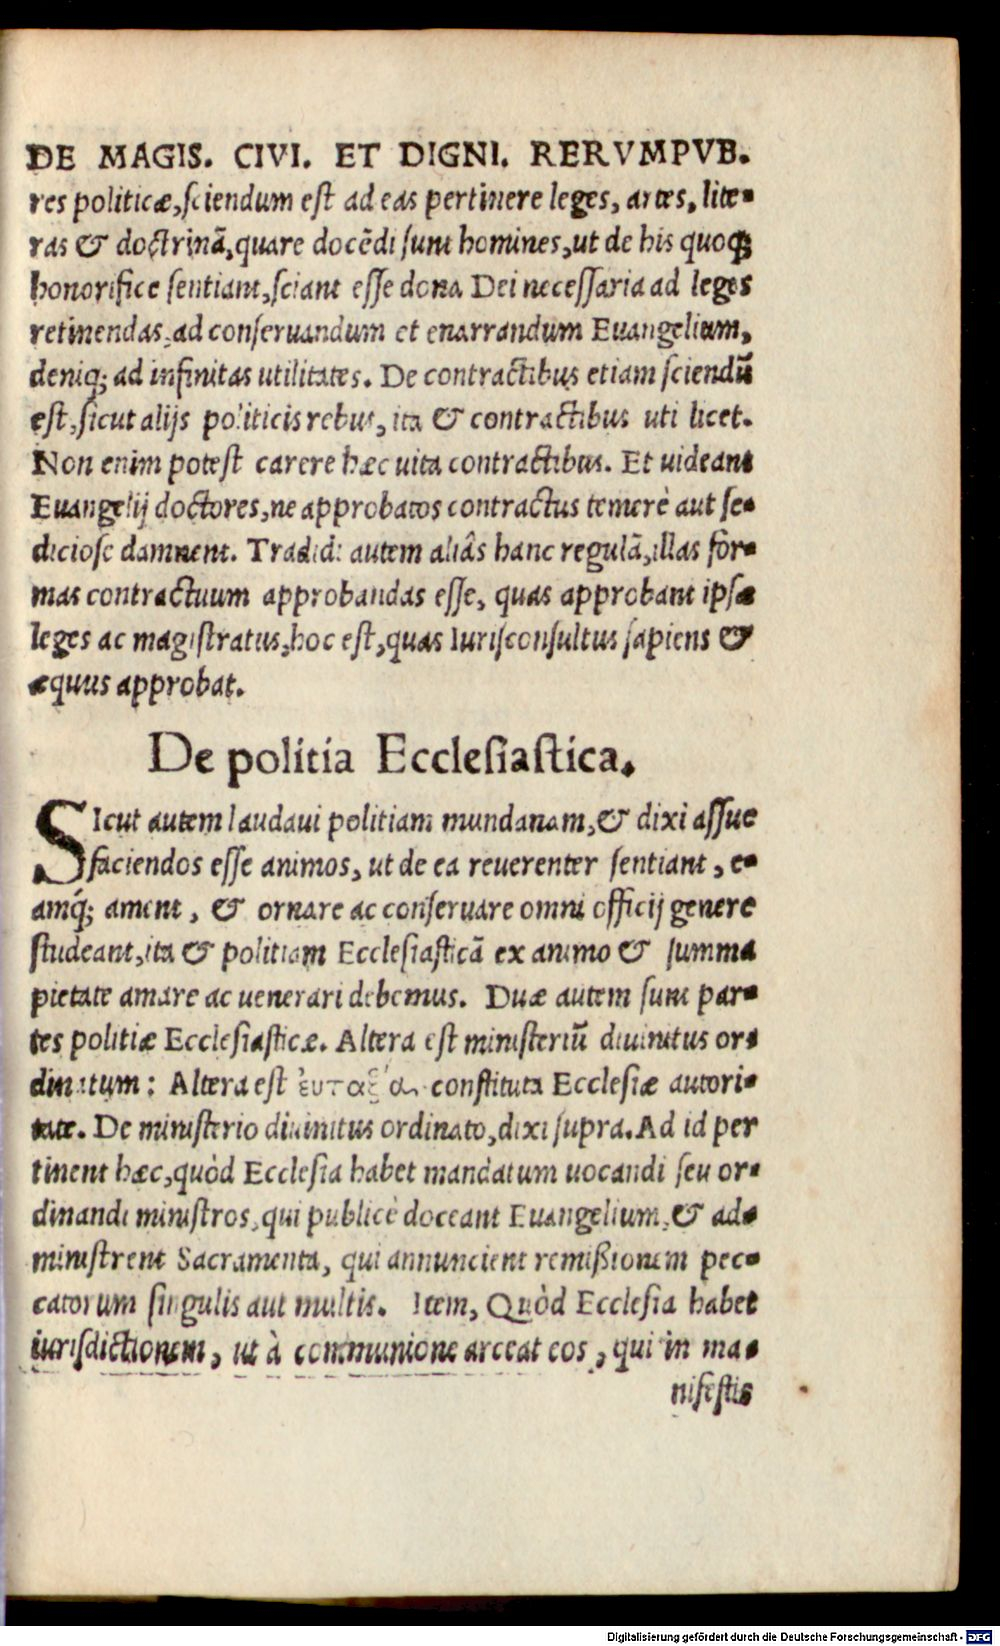 DE MAGIS. CIVI. ET DIGNI. RERVMPVB.
res politicæ, sciendum est ad eas pertinere leges, artes, lite-
ras & doctrinā, quare docēdi sunt homines, ut de his quoq;
honorifice sentiant, sciant esse dona Dei necessaria ad leges
retinendas, ad conseruandum et enarrandum Euangelium,
deniq; ad infinitas utilitates. De contractibus etiam sciendū
est, sicut alijs politicis rebus, ita & contractibus uti licet.
Non enim potest carere hæc uita contractibus. Et uideant
Euangelij doctores, ne approbatos contractus temerè aut se-
diciose damnent. Tradidi autem aliâs hanc regulā, illas for-
mas contractuum approbandas esse, quas approbant ipsæ
leges ac magistratus, hoc est, quas Iurisconsultus sapiens &
æquus approbat.
De politia Ecclesiastica.
SIcut autem laudaui politiam mundanam, & dixi assue
faciendos esse animos, ut de ea reuerenter sentiant, e-
amq́; ament, & ornare ac conseruare omni officij genere
studeant, ita & politiam Ecclesiasticā ex animo & summa
pietate amare ac uenerari debemus. Duæ autem sunt par-
tes politiæ Ecclesiasticæ. Altera est ministeriū diuinitus or-
dinatum: Altera est ἐυταξία constituta Ecclesiæ autori-
tate. De ministerio diuinitus ordinato, dixi supra. Ad id per
tinent hæc, quòd Ecclesia habet mandatum uocandi seu or-
dinandi ministros, qui publicè doceant Euangelium, & ad-
ministrent Sacramenta, qui annuncient remißionem pec-
catorum singulis aut multis. Item, Quòd Ecclesia habet
iurisdictionem, ut à communione arceat eos, qui in ma-
nifestis
Digitalisierung gefördert durch die Deutsche Forschungsgemeinschaft - DFG